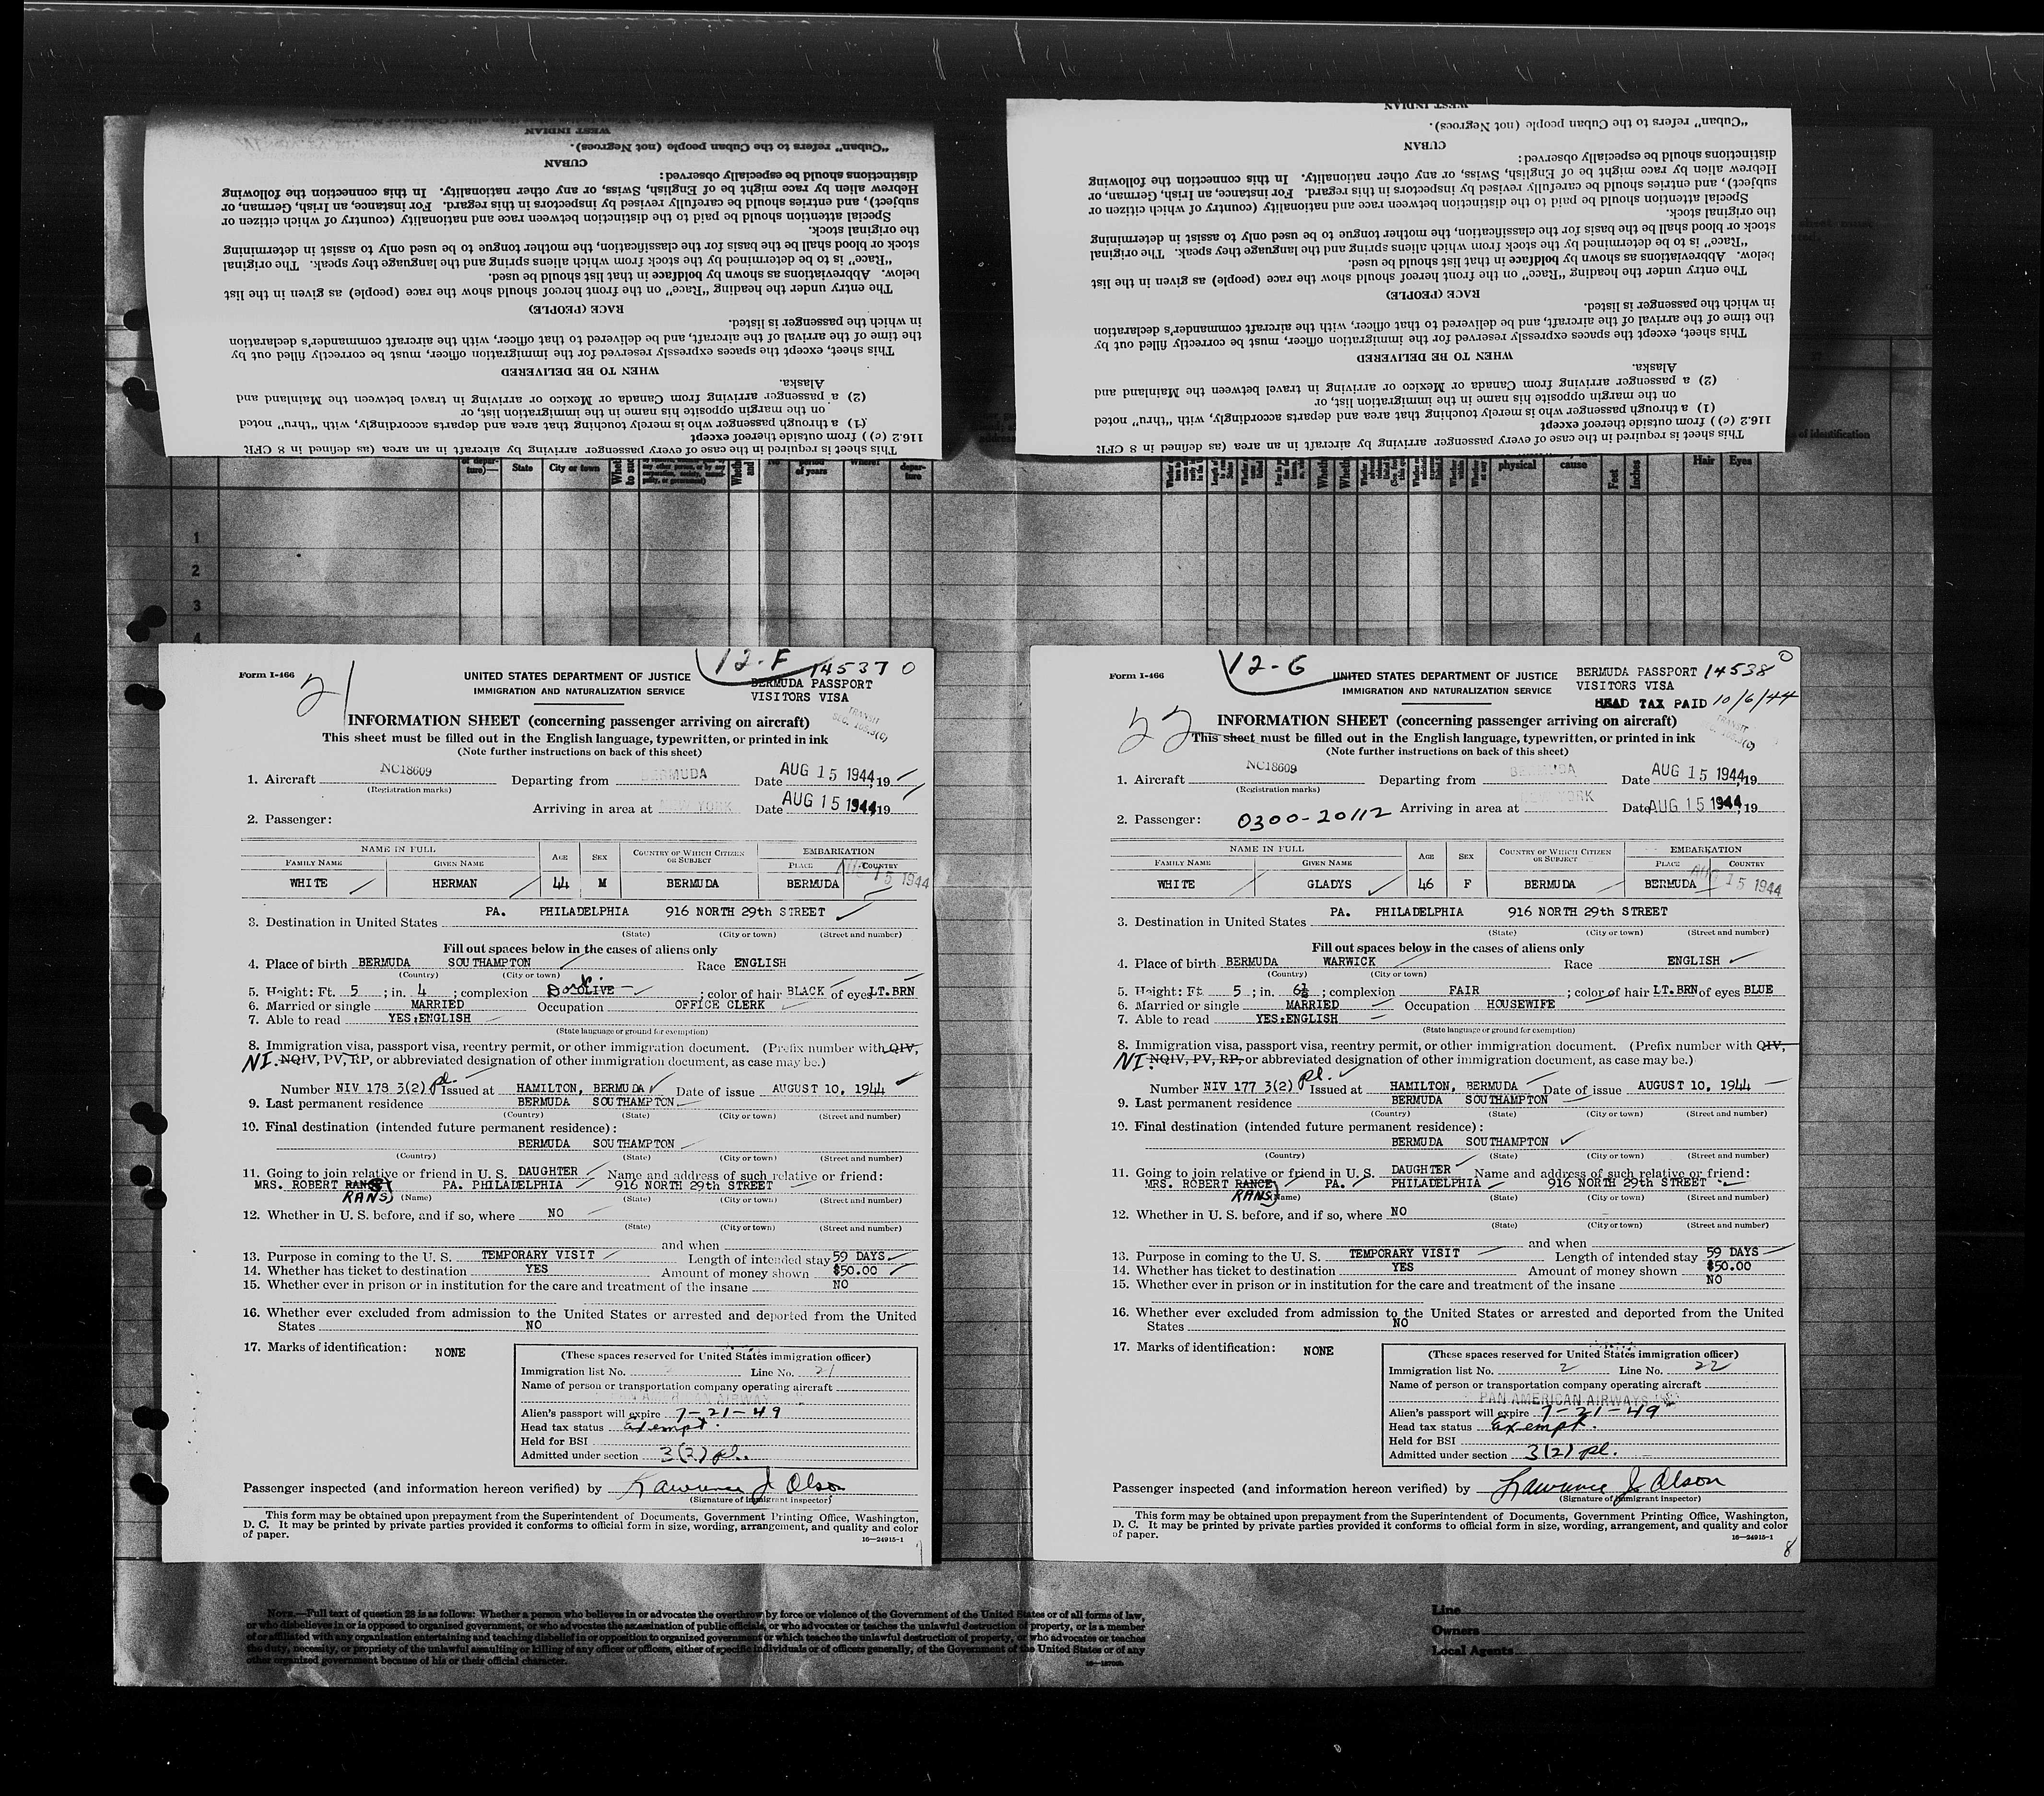 WEST INDIAN
"Cuban" refers to the Cuban people (not Negroes).
CUBAN
distinctions should be especially observed:
Hebrew alien by race might be of English, Swiss, or any other nationality. In this connection the following
subject), and entries should be carefully revised by inspectors in this regard. For instance, an Irish, German, or
Special attention should be paid to the distinction between race and nationality (country of which citizen or
the original stock.
stock or blood shall be the basis for the classification, the mother tongue to be used only to assist in determining
"Race" is to be determined by the stock from which aliens spring and the language they speak. The original
below. Abbreviations as shown by boldface in that list should be used.
The entry under the heading "Race" on the front hereof should show the race (people) as given in the list
RACE (PEOPLE)
in which the passenger is listed.
the time of the arrival of the aircraft, and be delivered to that officer, with the aircraft commander's declaration
This sheet, except the spaces expressly reserved for the immigration officer, must be correctly filled out by
WHEN TO BE DELIVERED
Alaska.
(2) a passenger arriving from Canada or Mexico or arriving in travel between the Mainland and
on the margin opposite his name in the immigration list, or
(1) a through passenger who is merely touching that area and departs accordingly, with "thru" noted
116.2 (c)) from outside thereof except
This sheet is required in the case of every passenger arriving by aircraft in an area (as defined in 8 CFR
WEST INDIAN
"Cuban" refers to the Cuban people (not Negroes).
CUBAN
distinctions should be especially observed:
Hebrew alien by race might be of English, Swiss, or any other nationality. In this connection the following
subject), and entries should be carefully revised by inspectors in this regard. For instance, an Irish, German, or
Special attention should be paid to the distinction between race and nationality (country of which citizen or
the original stock.
stock or blood shall be the basis for the classification, the mother tongue to be used only to assist in determining
"Race" is to be determined by the stock from which aliens spring and the language they speak. The original
below. Abbreviations as shown by boldface in that list should be used.
The entry under the heading "Race" on the front hereof should show the race (people) as given in the list
RACE (PEOPLE)
in which the passenger is listed.
the time of the arrival of the aircraft, and be delivered to that officer, with the aircraft commander's declaration
This sheet, except the spaces expressly reserved for the immigration officer, must be correctly filled out by
WHEN TO BE DELIVERED
Alaska.
(2) a passenger arriving from Canada or Mexico or arriving in travel between the Mainland and
on the margin opposite his name in the immigration list, or
(1) a through passenger who is merely touching that area and departs accordingly, with "thru" noted
116.2 (c)) from outside thereof except
This sheet is required in the case of every passenger arriving by aircraft in an area (as defined in 8 CFR
of identification
State City or town of years Where? departure
physical cause Feet Inches Hair Eyes
1
2
3
4
12-F 14537 0
Form I-466 UNITED STATES DEPARTMENT OF JUSTICE BERMUDA PASSPORT
21 IMMIGRATION AND NATURALIZATION SERVICE VISITORS VISA
TRANSIT
INFORMATION SHEET (concerning passenger arriving on aircraft)
This sheet must be filled out in the English language, typewritten, or printed in ink
(Note further instructions on back of this sheet)
1. Aircraft NC18609 Departing from BERMUDA Date AUG 15 1944, 19
(Registration marks)
Arriving in area at NEW YORK Date AUG 15 1944, 19
2. Passenger:
NAME IN FULL AGE SEX COUNTRY OF WHICH CITIZEN OR SUBJECT EMBARKATION
FAMILY NAME GIVEN NAME PLACE COUNTRY
AUG 15 1944
WHITE HERMAN 44 M BERMUDA BERMUDA
3. Destination in United States PA. PHILADELPHIA 916 NORTH 29th STREET
(State) (City or town) (Street and number)
Fill out spaces below in the cases of aliens only
4. Place of birth BERMUDA SOUTHAMPTON Race ENGLISH
(Country) (City or town)
5. Height: Ft. 5 ; in. 4 ; complexion Dark OLIVE ; color of hair BLACK of eyes LT.BRN
6. Married or single MARRIED Occupation OFFICE CLERK
7. Able to read YES:ENGLISH
(State language or ground for exemption)
8. Immigration visa, passport visa, reentry permit, or other immigration document. (Prefix number with QIV,
NI. NQIV, PV, RP, or abbreviated designation of other immigration document, as case may be.)
Number NIV 178 3(2) pl. Issued at HAMILTON, BERMUDA Date of issue AUGUST 10, 1944
9. Last permanent residence BERMUDA SOUTHAMPTON
(Country) (State) (City or town) (Street and number)
10. Final destination (intended future permanent residence):
BERMUDA SOUTHAMPTON
(Country) (State) (City or town) (Street and number)
11. Going to join relative or friend in U. S. DAUGHTER Name and address of such relative or friend:
MRS. ROBERT RANCE PA. PHILADELPHIA 916 NORTH 29th STREET
RANS) (Name) (State) (City or town) (Street and number)
12. Whether in U. S. before, and if so, where NO
(State) (City or town) (Street and number)
and when
13. Purpose in coming to the U. S. TEMPORARY VISIT Length of intended stay 59 DAYS
14. Whether has ticket to destination YES Amount of money shown $50.00
15. Whether ever in prison or in institution for the care and treatment of the insane NO
16. Whether ever excluded from admission to the United States or arrested and deported from the United
States NO
17. Marks of identification: NONE
(These spaces reserved for United States immigration officer)
Immigration list No. 2 Line No. 21
Name of person or transportation company operating aircraft
PAN AMERICAN AIRWAYS
Alien's passport will expire 7-21-49
Head tax status Exempt.
Held for BSI
Admitted under section 3(2) pl.
Passenger inspected (and information hereon verified) by Lawrence J. Olson
(Signature of immigrant inspector)
This form may be obtained upon prepayment from the Superintendent of Documents, Government Printing Office, Washington,
D. C. It may be printed by private parties provided it conforms to official form in size, wording, arrangement, and quality and color
of paper. 16—24915-1
12-G 0
Form I-466 UNITED STATES DEPARTMENT OF JUSTICE BERMUDA PASSPORT 14538
IMMIGRATION AND NATURALIZATION SERVICE VISITORS VISA
HEAD TAX PAID 10/6/44
22 TRANSIT
INFORMATION SHEET (concerning passenger arriving on aircraft)
This sheet must be filled out in the English language, typewritten, or printed in ink
(Note further instructions on back of this sheet)
1. Aircraft NC18609 Departing from BERMUDA Date AUG 15 1944, 19
(Registration marks)
Arriving in area at NEW YORK Date AUG 15 1944, 19
2. Passenger: 0300-20112
NAME IN FULL AGE SEX COUNTRY OF WHICH CITIZEN OR SUBJECT EMBARKATION
FAMILY NAME GIVEN NAME PLACE COUNTRY
AUG 15 1944
WHITE GLADYS 46 F BERMUDA BERMUDA
3. Destination in United States PA. PHILADELPHIA 916 NORTH 29th STREET
(State) (City or town) (Street and number)
Fill out spaces below in the cases of aliens only
4. Place of birth BERMUDA WARWICK Race ENGLISH
(Country) (City or town)
5. Height: Ft. 5 ; in. 6½ ; complexion FAIR ; color of hair LT.BRN of eyes BLUE
6. Married or single MARRIED Occupation HOUSEWIFE
7. Able to read YES:ENGLISH
(State language or ground for exemption)
8. Immigration visa, passport visa, reentry permit, or other immigration document. (Prefix number with QIV,
NI. NQIV, PV, RP, or abbreviated designation of other immigration document, as case may be.)
Number NIV 177 3(2) pl. Issued at HAMILTON, BERMUDA Date of issue AUGUST 10, 1944
9. Last permanent residence BERMUDA SOUTHAMPTON
(Country) (State) (City or town) (Street and number)
10. Final destination (intended future permanent residence):
BERMUDA SOUTHAMPTON
(Country) (State) (City or town) (Street and number)
11. Going to join relative or friend in U. S. DAUGHTER Name and address of such relative or friend:
MRS. ROBERT RANCE PA. PHILADELPHIA 916 NORTH 29th STREET
RANS) (Name) (State) (City or town) (Street and number)
12. Whether in U. S. before, and if so, where NO
(State) (City or town) (Street and number)
and when
13. Purpose in coming to the U. S. TEMPORARY VISIT Length of intended stay 59 DAYS
14. Whether has ticket to destination YES Amount of money shown $50.00
15. Whether ever in prison or in institution for the care and treatment of the insane NO
16. Whether ever excluded from admission to the United States or arrested and deported from the United
States NO
17. Marks of identification: NONE
(These spaces reserved for United States immigration officer)
Immigration list No. 2 Line No. 22
Name of person or transportation company operating aircraft
PAN AMERICAN AIRWAYS INC
Alien's passport will expire 7-21-49
Head tax status Exempt.
Held for BSI
Admitted under section 3(2) pl.
Passenger inspected (and information hereon verified) by Lawrence J. Olson
(Signature of immigrant inspector)
This form may be obtained upon prepayment from the Superintendent of Documents, Government Printing Office, Washington,
D. C. It may be printed by private parties provided it conforms to official form in size, wording, arrangement, and quality and color
of paper. 16—24915-1
8
NOTE.—Full text of question 28 is as follows: Whether a person who believes in or advocates the overthrow by force or violence of the Government of the United States or of all forms of law,
or who disbelieves in or is opposed to organized government, or who advocates the assassination of public officials, or who advocates or teaches the unlawful destruction of property, or is a member
of or affiliated with any organization entertaining and teaching disbelief in or opposition to organized government or which teaches the unlawful destruction of property, or who advocates or teaches
the duty, necessity, or propriety of the unlawful assaulting or killing of any officer or officers, either of specific individuals or of officers generally, of the Government of the United States or of any
other organized government because of his or their official character.
Line
Owners
Local Agents